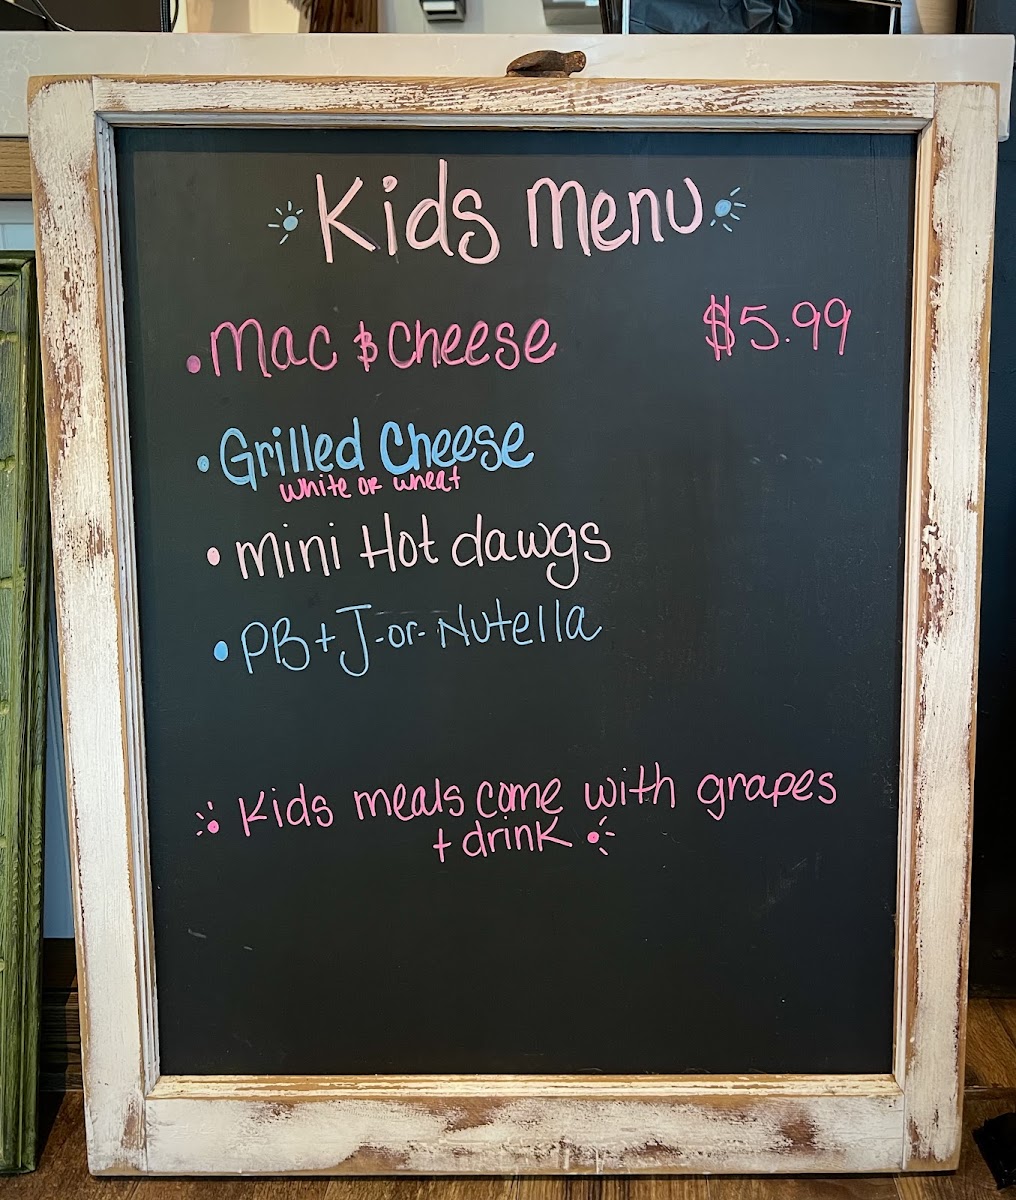 Kids Menu
• Mac & Cheese $5.99
• Grilled Cheese
white or wheat
• Mini Hot dawgs
• PB + J -or- Nutella
Kids meals come with grapes
+ drink